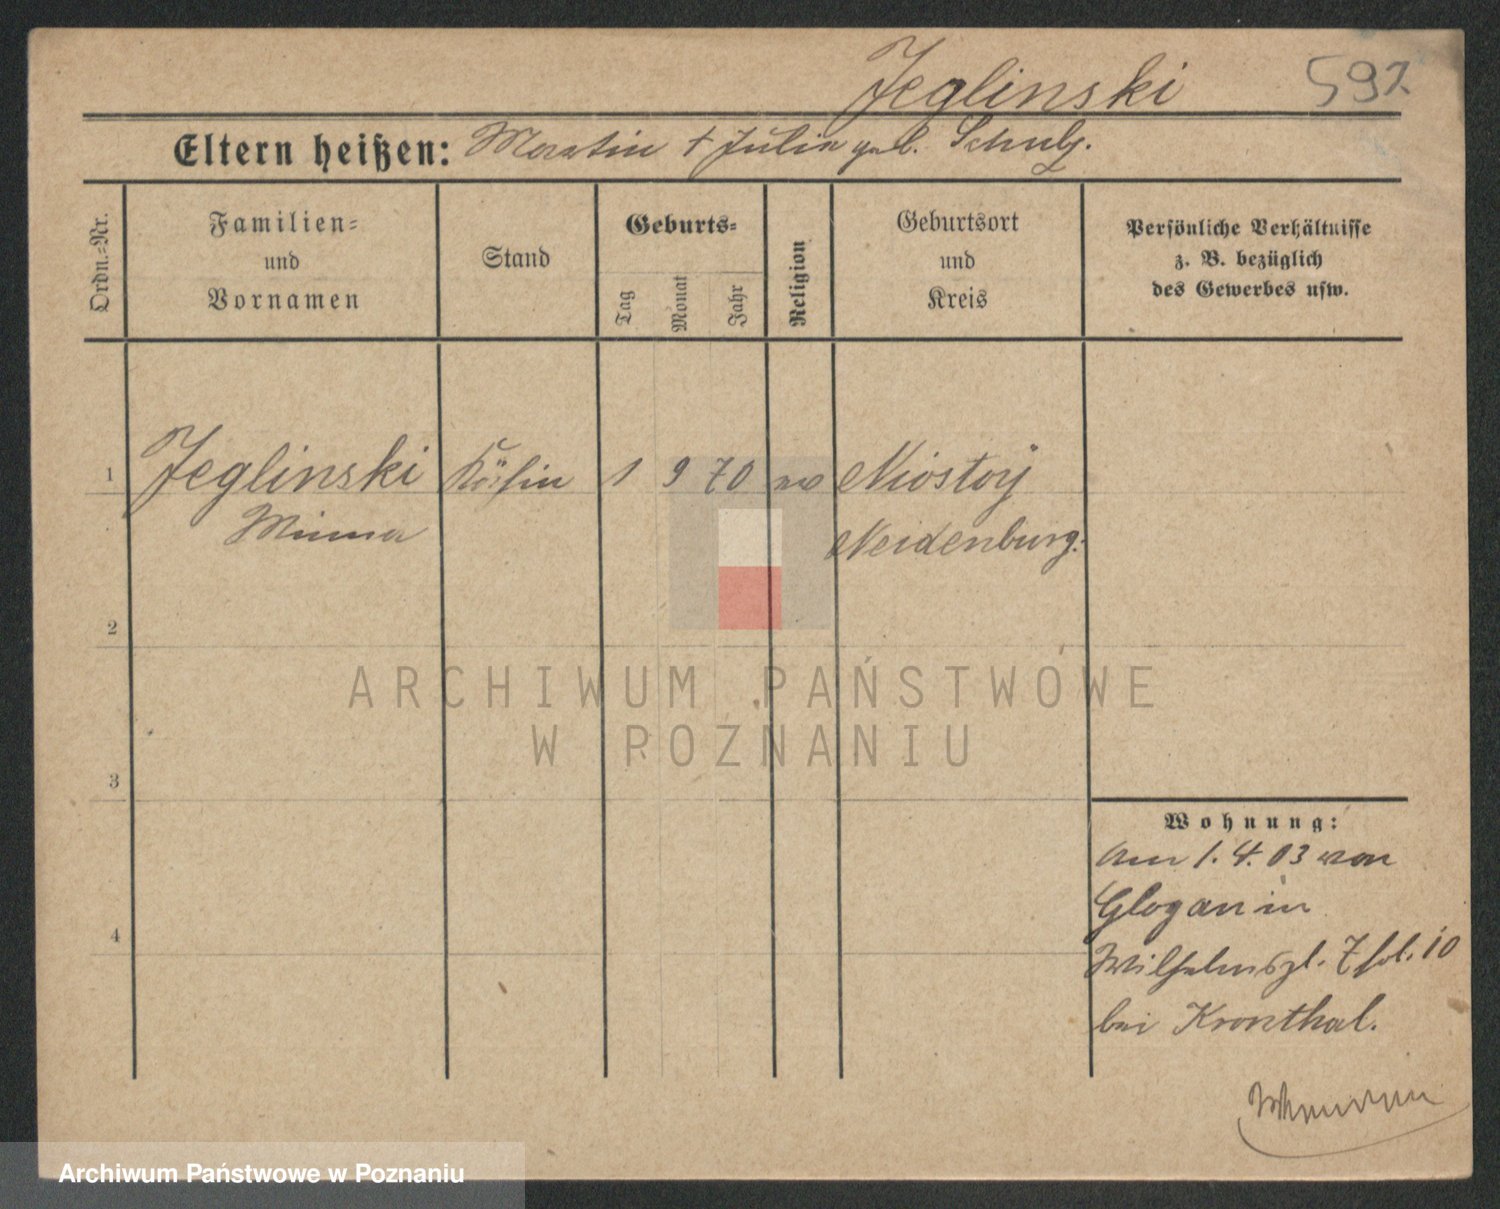 Jeglinski 592
Eltern heißen: Martin + Julia geb. Schulz.
Ordn.-Nr.
Familien- und Vornamen
Stand
Geburts-
Tag
Monat
Jahr
Religion
Geburtsort und Kreis
Persönliche Verhältnisse
z. B. bezüglich
des Gewerbes usw.
1 Jeglinski Köchin 1 9 70 ev Niostoy
Minna Neidenburg.
2
3
4
Wohnung:
Am 1. 4. 03 von
Glogau in
Wilhelmspl. 7 fol. 10
bei Kronthal.
ARCHIWUM PAŃSTWOWE
W POZNANIU
Archiwum Państwowe w Poznaniu